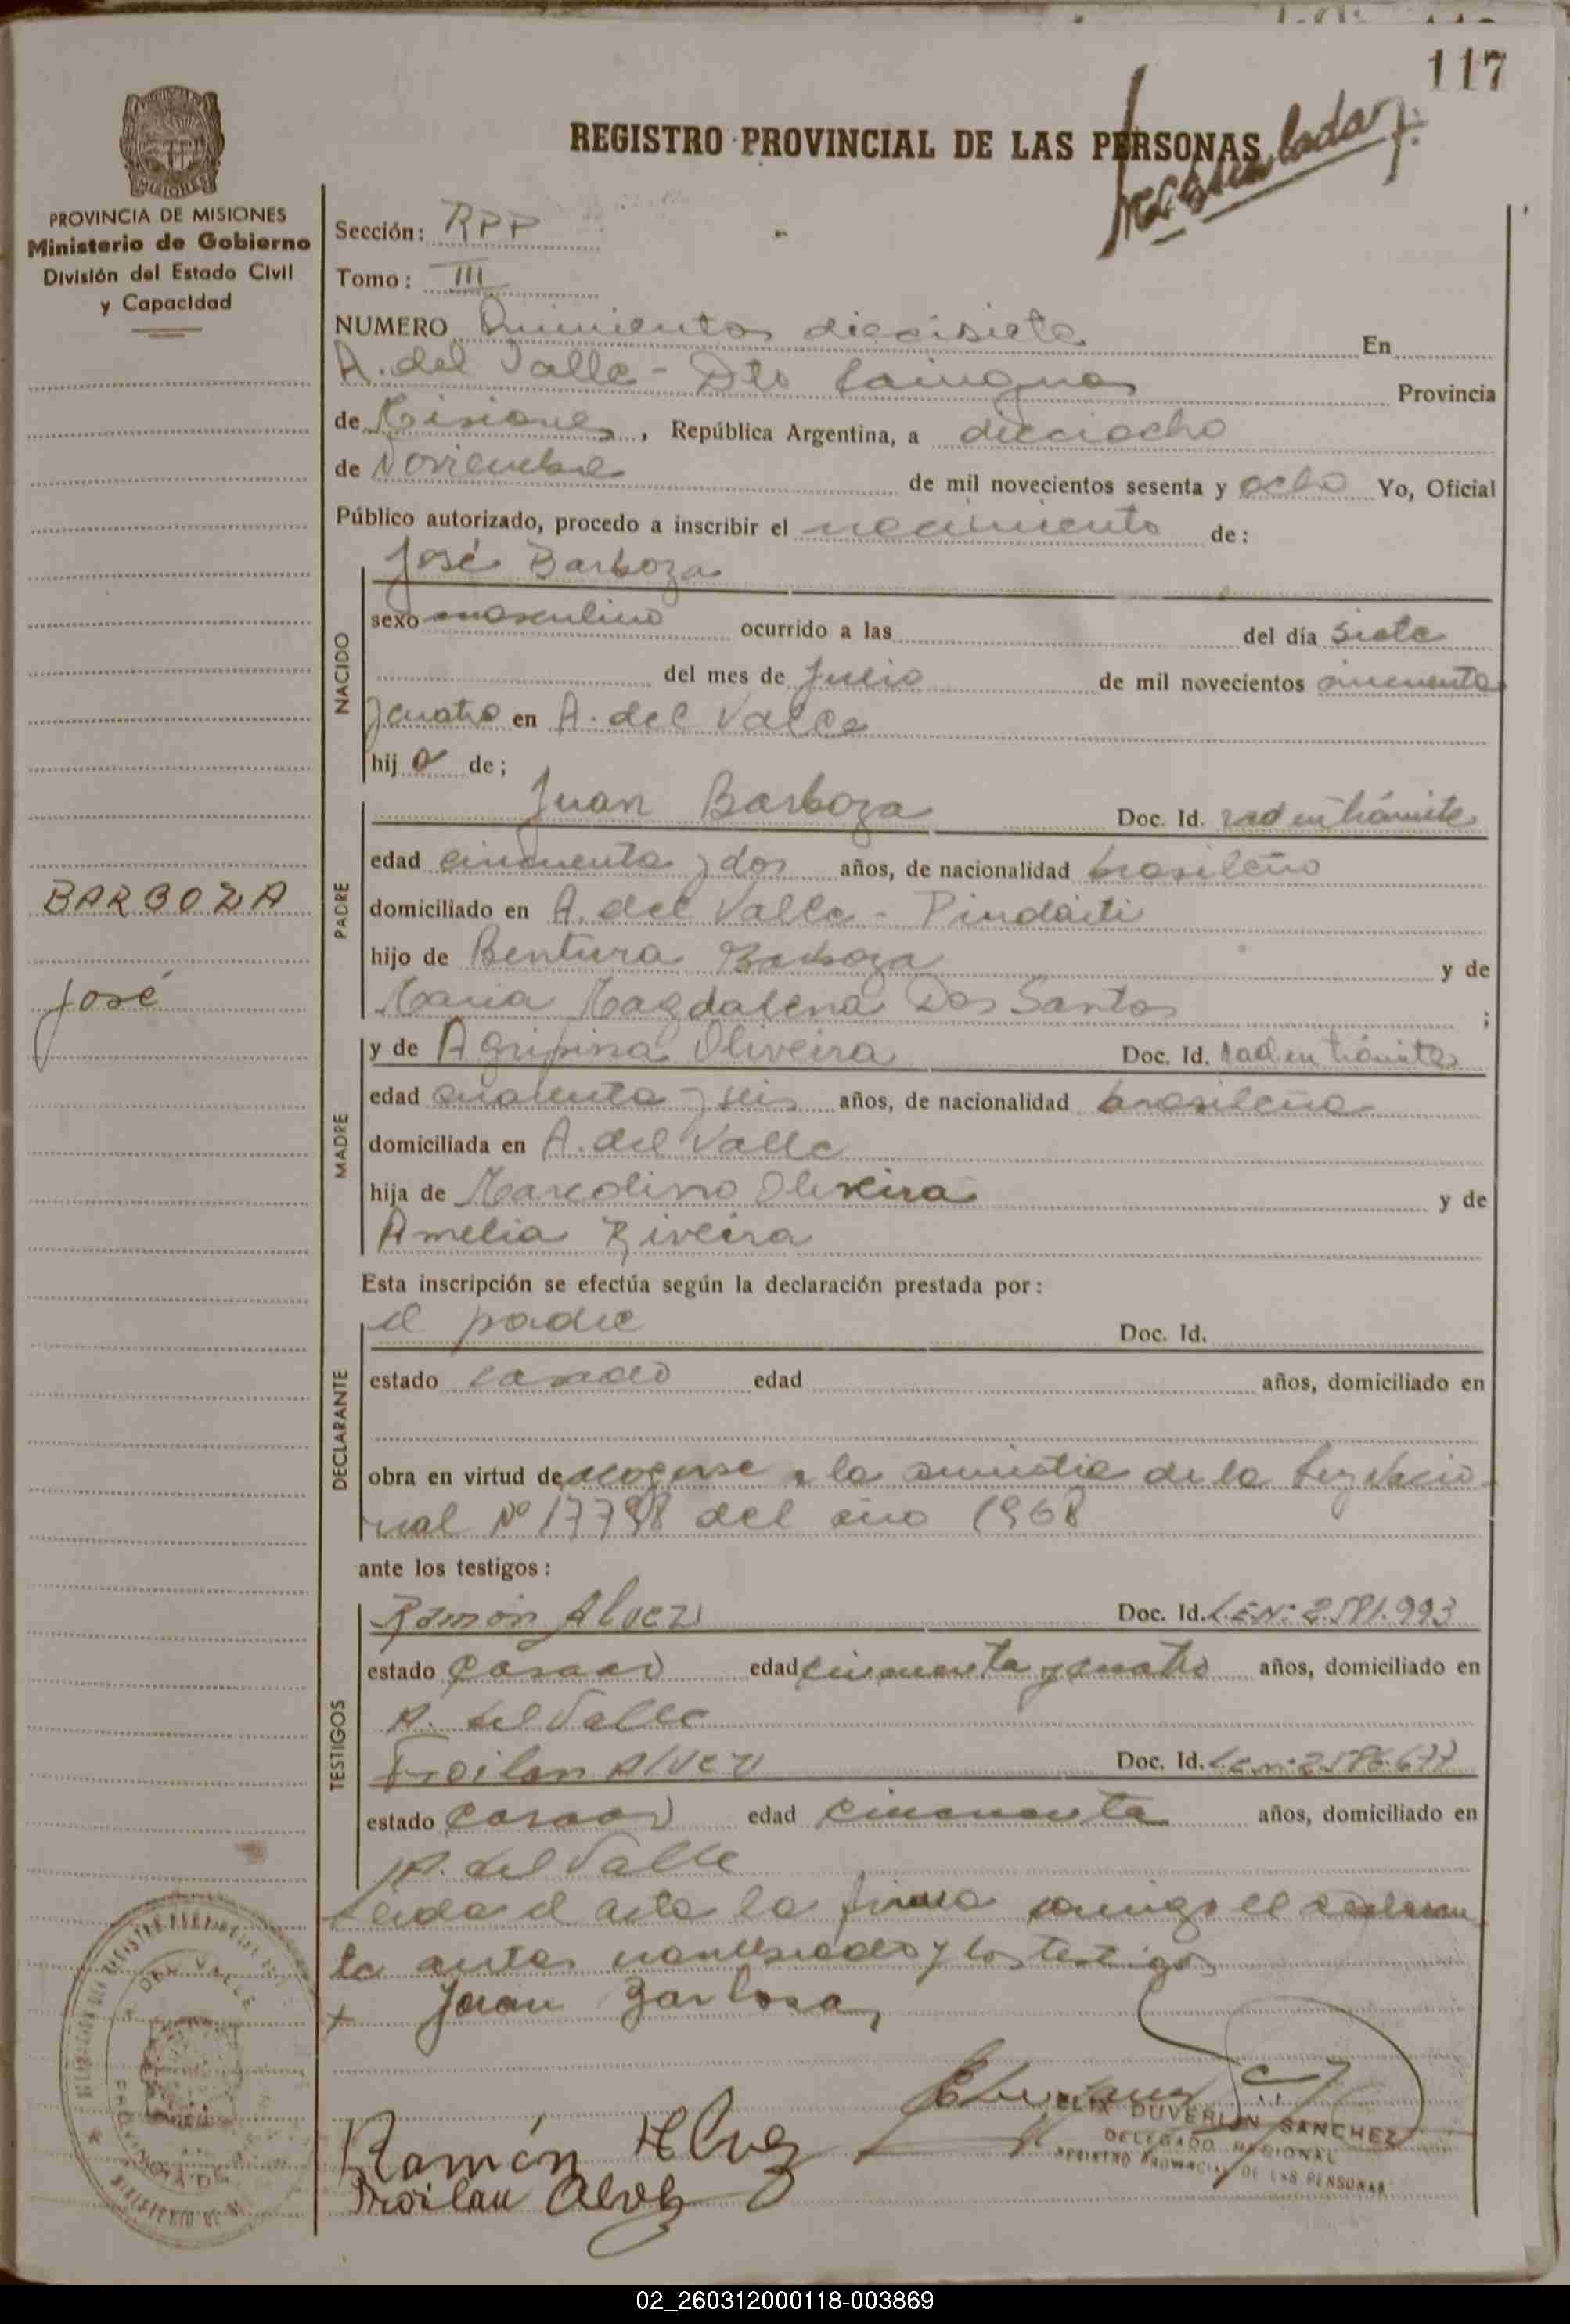 117
REGISTRO PROVINCIAL DE LAS PERSONAS
MISIONES
PROVINCIA DE MISIONES
Ministerio de Gobierno
División del Estado Civil
y Capacidad
Sección: RPP
Tomo: III
NUMERO Quinientos diecisiete En
A. del Valle - Dto Cainguas Provincia
de Misiones, República Argentina, a dieciocho
de Noviembre de mil novecientos sesenta y ocho Yo, Oficial
Público autorizado, procedo a inscribir el nacimiento de:
José Barboza
NACIDO
sexo masculino ocurrido a las del día siete
del mes de Julio de mil novecientos cincuenta
y cuatro en A. del Valle
hijo de;
Juan Barboza Doc. Id. rad en trámite
PADRE
edad cincuenta y dos años, de nacionalidad brasileño
domiciliado en A. del Valle - Pindaiti
hijo de Bentura Barboza y de
Maria Magdalena Dos Santos ;
BARBOZA
José
y de Agripina Oliveira Doc. Id. rad en trámite
MADRE
edad cuarenta y seis años, de nacionalidad brasileña
domiciliada en A. del Valle
hija de Marcolino Oliveira y de
Amelia Riveira
Esta inscripción se efectúa según la declaración prestada por:
el padre Doc. Id.
DECLARANTE
estado casado edad años, domiciliado en
obra en virtud de acogerse a la amnistia de la Ley Nacio-
nal Nº 17798 del año 1968
ante los testigos:
Ramón Alvez Doc. Id. L.E.Nº 2.581.993
TESTIGOS
estado casado edad cincuenta y cuatro años, domiciliado en
A. del Valle
Froilan Alvez Doc. Id. L.E.Nº 2.586.677
estado casado edad cincuenta años, domiciliado en
A. del Valle
Leida el acta la firma conmigo el declaran
te antes nombrado y los testigos
x Juan Barbosa
Ramón Alvez
Froilan Alvez
DUVERLIN SANCHEZ
DELEGADO REGIONAL
REGISTRO PROVINCIAL DE LAS PERSONAS
DEL VALLE
02_260312000118-003869